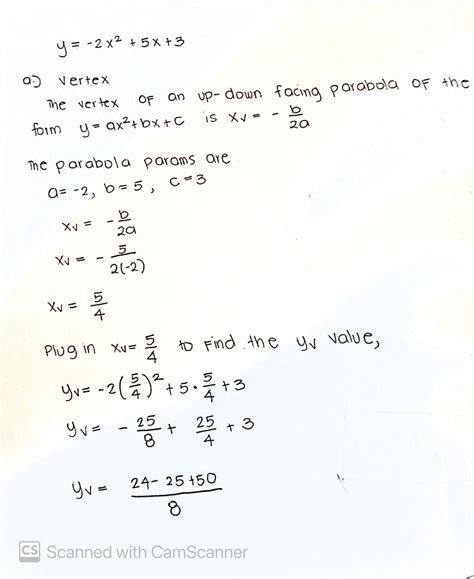 y = -2x² + 5x + 3
a.) vertex
The vertex of an up-down facing parabola of the
form y = ax² + bx + c is xᵥ = - b/2a
The parabola params are
a = -2, b = 5, c = 3
xᵥ = - b/2a
xᵥ = - 5/2(-2)
xᵥ = 5/4
Plug in xᵥ = 5/4 to find the yᵥ value,
yᵥ = -2(5/4)² + 5 · 5/4 + 3
yᵥ = - 25/8 + 25/4 + 3
yᵥ = 24 - 25 + 50/8
CS Scanned with CamScanner